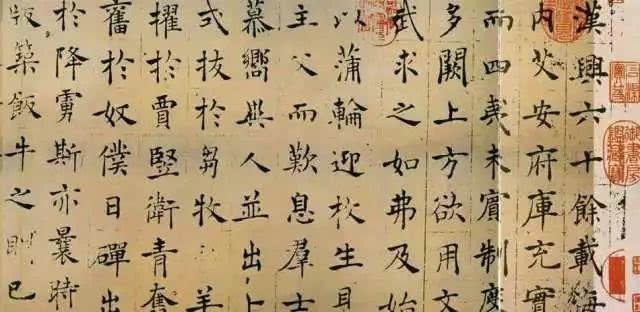 漢興六十餘載海
內艾安府庫充實
而四夷未賓制度
多闕上方欲用文
武求之如弗及始
以蒲輪迎枚生見
主父而歎息羣士
慕嚮異人並出卜
式拔於芻牧羊
擢於賈豎衛青奮
舊於奴僕日磾出
於降虜斯亦曩時
版築飯牛之朋已